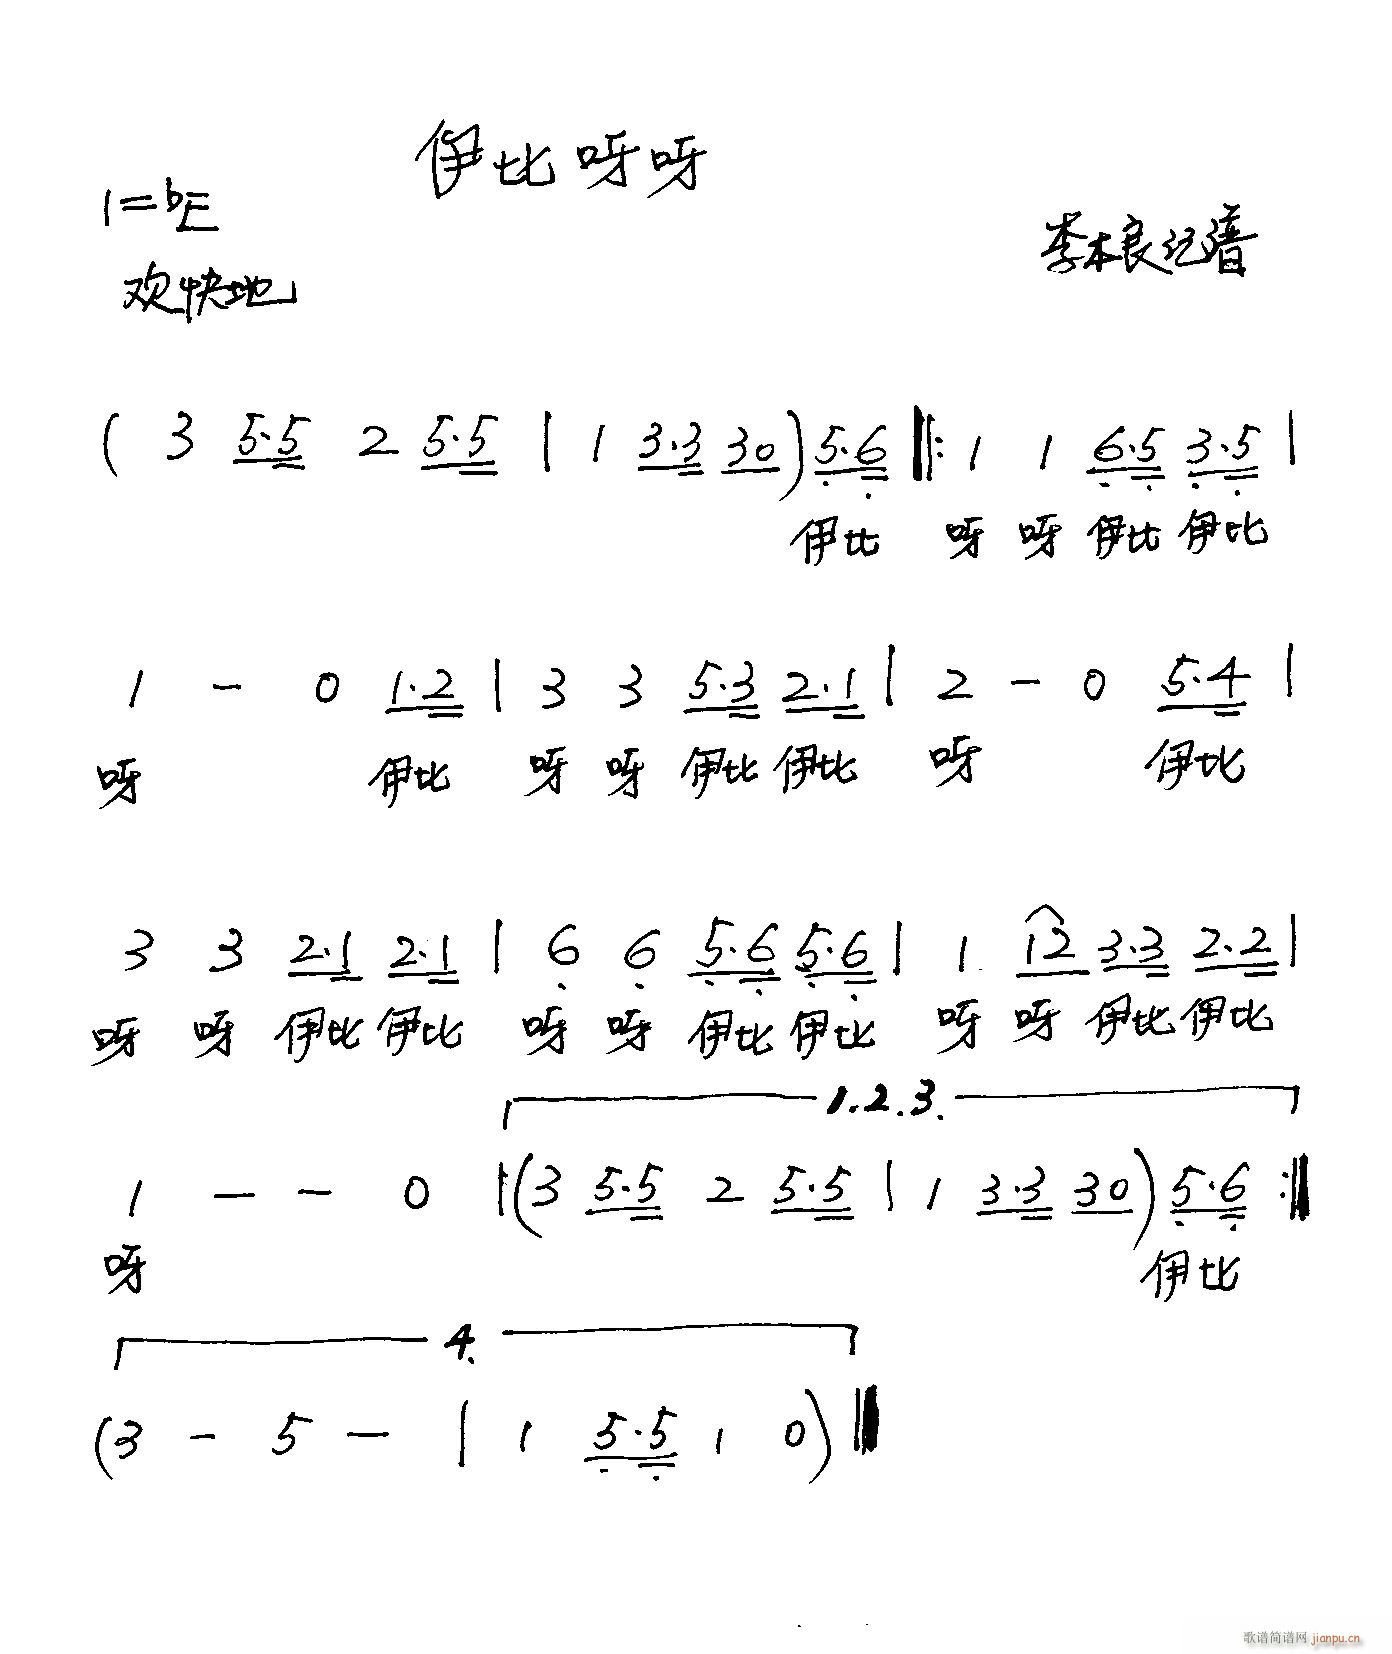 伊比呀呀
1=bE
李本良记谱
欢快地
( 3 5·5 2 5·5 | 1 3·3 30 ) 5·6 ‖: 1 1 6·5 3·5 |
伊比 呀 呀 伊比 伊比
1 - 0 1·2 | 3 3 5·3 2·1 | 2 - 0 5·4 |
呀 伊比 呀 呀 伊比 伊比 呀 伊比
3 3 2·1 2·1 | 6 6 5·6 5·6 | 1 12 3·3 2·2 |
呀 呀 伊比 伊比 呀 呀 伊比 伊比 呀 呀 伊比 伊比
1.2.3.
1 - - 0 | ( 3 5·5 2 5·5 | 1 3·3 30 ) 5·6 :‖
呀 伊比
4.
( 3 - 5 - | 1 5·5 1 0 ) ‖
歌谱简谱网 jianpu.cn